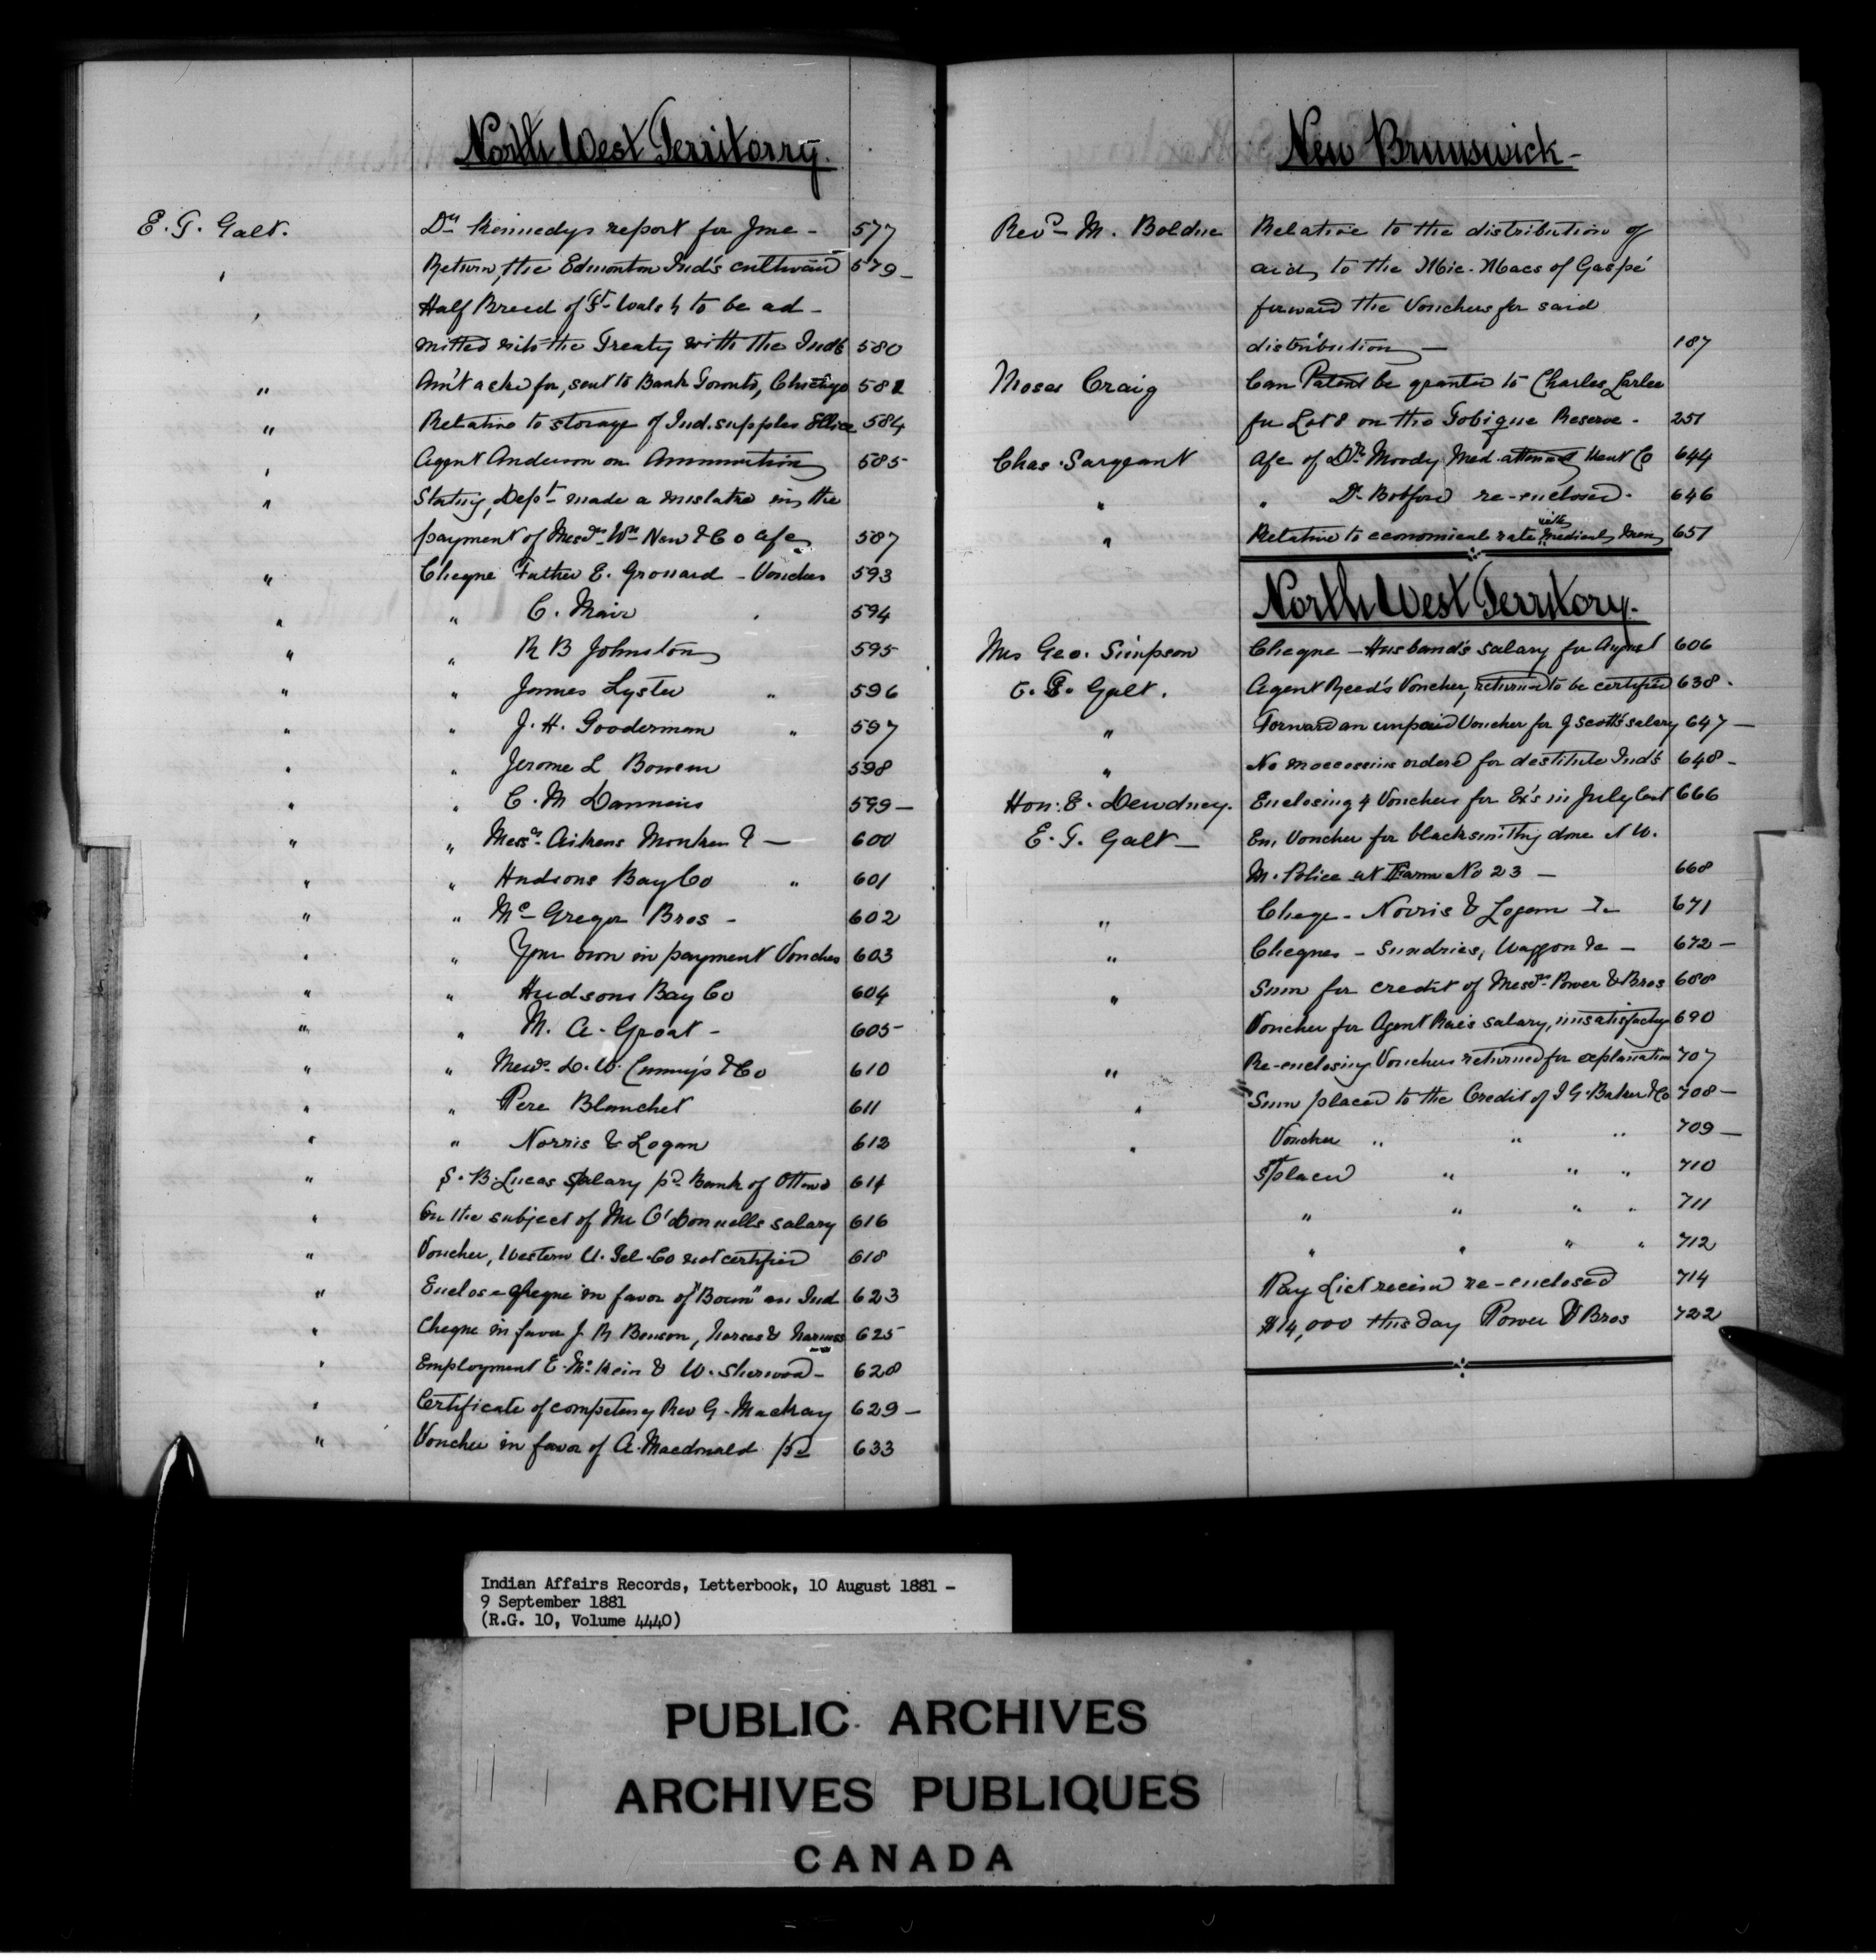 North West Territorry.
E. T. Galt. Dr Kennedys report for June - 577
' Return, the Edmonton Ind's cultivated 579 -
' Half Breed of Ft Walsh to be ad -
mitted into the Treaty with the Inds 580
" Am't asked for, sent to Bank Toronto, Chicago 582
" Relative to storage of Ind. supplies Ellice 584
' Agent Anderson on Ammunition 585
" Stating, Dept made a mistake in the
payment of Messrs Wm New & Co a/c 587
" Cheque Father E. Grouard - Voucher 593
" " C. Mair " 594
" " R B Johnston 595
" " James Lyster " 596
" " J. H. Gooderman " 597
" " Jerome L Bowen 598
" " C. M Dannins 599 -
" " Messrs Aitkens Monkman & - 600
" " Hudsons Bay Co " 601
" " Mc Gregor Bros - 602
" " Your own in payment Voucher 603
" " Hudsons Bay Co 604
" " M. A. Groat - 605
" " Messrs L. W. & Co 610
" " Pere Blanchet 611
" " Norris & Logan 612
" S. B. Lucas Salary pd Bank of Ottawa 614
" On the subject of Mr O'Donnells salary 616
" Voucher, Western U. Tel. Co not certified 618
" Enclose cheque in favor of "Boun" an Ind 623
" Cheque in favor J. R Benson, horses & harness 625
' Employment E. McKein & W. Sherwood - 628
' Certificate of competency Rev G. Mackay 629 -
" Voucher in favor of A. Macdonald pd 633
New Brunswick -
Revd M. Boldue Relative to the distribution of
aid, to the Mic-Macs of Gaspé
forward the Vouchers for said
distribution - 187
Moses Craig Can Patent be granted to Charles Larlee
for Lot 8 on the Tobique Reserve - 251
Chas. Sargeant A/c of Dr Moody Med. attend Kent Co 644
" " Dr Botford re-enclosed - 646
" Relative to economical rate with medical men 651
North West Territory.
Mrs Geo. Simpson Cheque - Husband's salary for August 606
E. T. Galt. Agent Reed's Voucher, returned to be certified 638 -
" Forward an unpaid Voucher for J Scott's salary 647 -
" No moccosins ordered for destitute Ind's 648 -
Hon: E. Dewdney. Enclosing 4 Vouchers for Ex's in July last 666
E. T. Galt - En, Voucher for blacksmithing done N W.
M. Police at Farm No 23 - 668
" Cheqe - Norris & Logan & - 671
" Cheques - Sundries, Waggon &c - 672 -
" Sum for credit of Messrs Power & Bros 688
Voucher for Agent Rae's salary, unsatisfactory 690
" Re-enclosing Vouchers returned for explanation 707
" Sum placed to the Credit of I G. Baker & Co 708 -
" Voucher " " " 709 -
S placed " " " 710
" " " " 711
" " " " 712
Pay List receivd re-enclosed 714
$14,000 this day Power & Bros 722
Indian Affairs Records, Letterbook, 10 August 1881 -
9 September 1881
(R.G. 10, Volume 4440)
PUBLIC ARCHIVES
ARCHIVES PUBLIQUES
CANADA